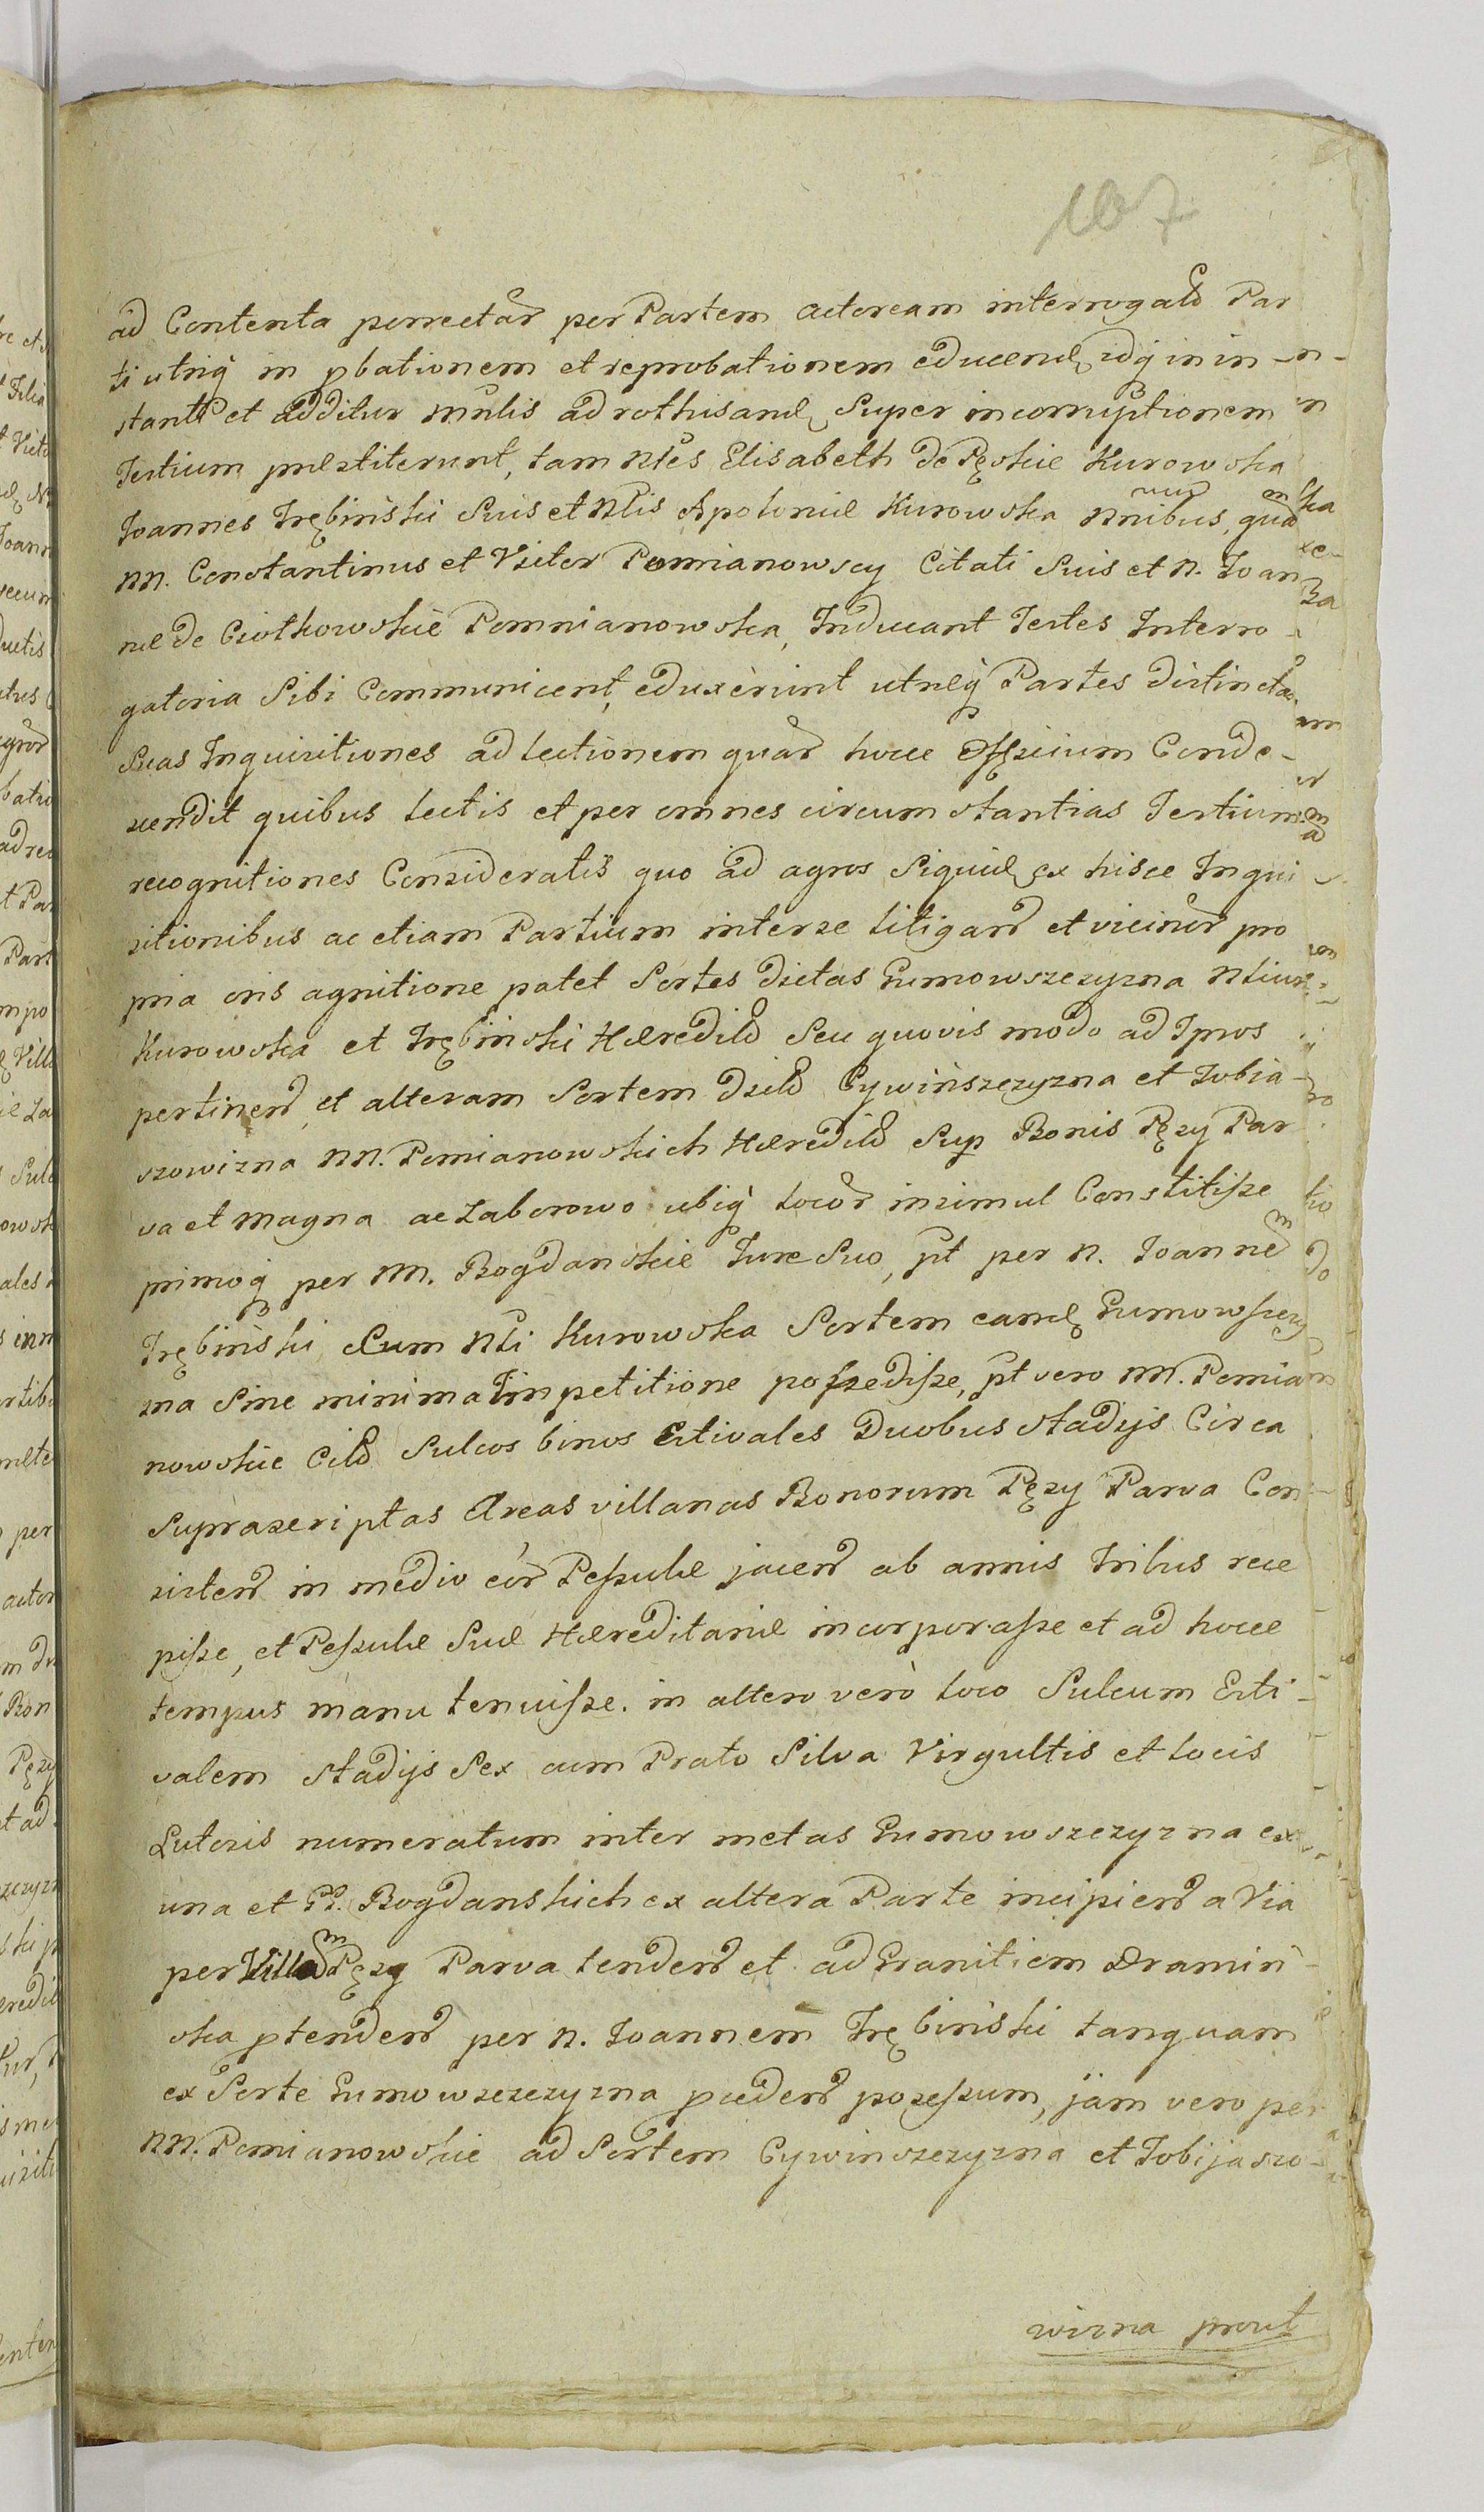 167
ad Contenta porrectar per Partem actoream interrogato Par
ti utriq in pbationem et reprobationem educend idq in in-
stanti et additur mnlis ad rothisand Super incorruptionem
Testium prestiterunt, tam Ntes Elisabeth de Pęskie Kurowska
Joannes Trębiński Suis et Ntis Apolonie Kurowska nnibus, quam
NN. Constantinus et Victor Pomianowscy Citati Suis et N. Joan
ne de Ciołkowskie Pomnianowska, Inducant Testes Interro-
gatoria Sibi Communicent, eduxerunt utreq Partes distinctas
Suas Inquisitiones ad lectionem quar hocce Officium Conde-
scendit quibus lectis et per omnes circumstantias Testium
recognitiones Consideratis quo ad agros Siquid ex hisce Inqui
sitionibus ac etiam Partium inter se litigan et vicinor pro
pria oris agnitione patet Sortes dictas Gumowszczyzna Ntium
Kurowska et Trębinski Heredit Seu quovis modo ad Ipsos
pertinen et alteram Sortem dict Cywińszczyzna et Tobia-
szowizna NN. Pomianowskich Heredit Sup Bonis Pęzy Par
va et Magna ac Zaborowo ubiq locor insimul Constitisse
primoq per NN. Bogdanskie Jure Suo, pt per N. Joannem
Trębiński Cum Nti Kurowska Sortem eand Gumowszczy
zna Sine minima Impetitione possedisse, pt vero NN. Pomia
nowskie Cit Sulcos binos Estivales Duobus Stadijs Circa
Suprascriptas Areas villanas Bonorum Pęzy Parva Con
sisten in medio eor Pessule jacen ab annis Tribus rece
pisse, et Pessule Sue Hereditarie incorporasse et ad hocce
tempus manu tenuisse. in altero verò loco Sulcum Esti-
valem Stadijs Sex cum Prato Silva Virgultis et locis
Lutosis numeratum inter metas Gumowszczyzna ex
una et GG. Bogdanskich ex altera Parte incipien a Via
per Villam Pęzy Parva tenden et ad Granitiem Dramiń-
ska ptenden per N. Joannem Trębiński tanquam
ex Sorte Gumowszczyzna pceden possessum, jam vero per
NN. Pomianowskie ad Sortem Cywinszczyzna et Tobijaszo-
wizna prout